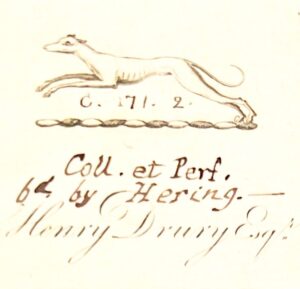 C. 171. 2.
Coll. et Perf.
bd. by Hering.—
Henry Drury Esqr.